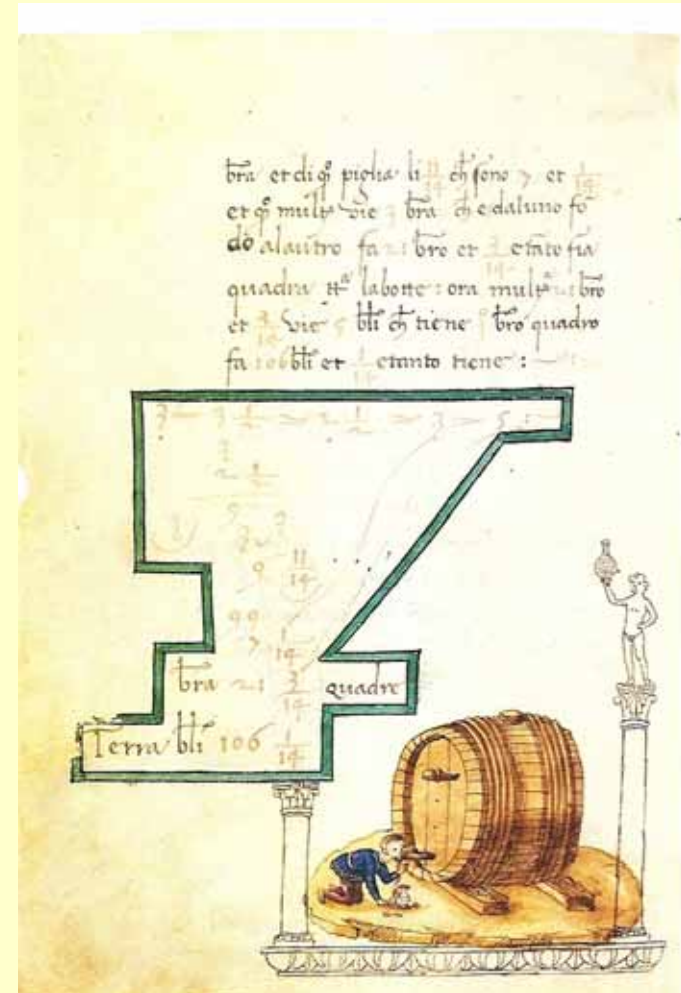 bra et di qo piglia li 11/14 ch sono 7 et 1/14
et qo mult vie 3 bra ch e daluno fo
do alautro fa 21 bro et 3/14 e tāto fia
quadra tta la botte : ora multa 21 bro
et 3/14 vie 5 bli ch tiene 1o bro quadro
fa 106 bli et 1/14 e tanto tiene :
3 — 3 1/2 — 2 1/2 — 3 — 5 :
3
2 1/2
9 11/14
99
7 1/14
bra 21 3/14 quadre
Terra bli 106 1/14